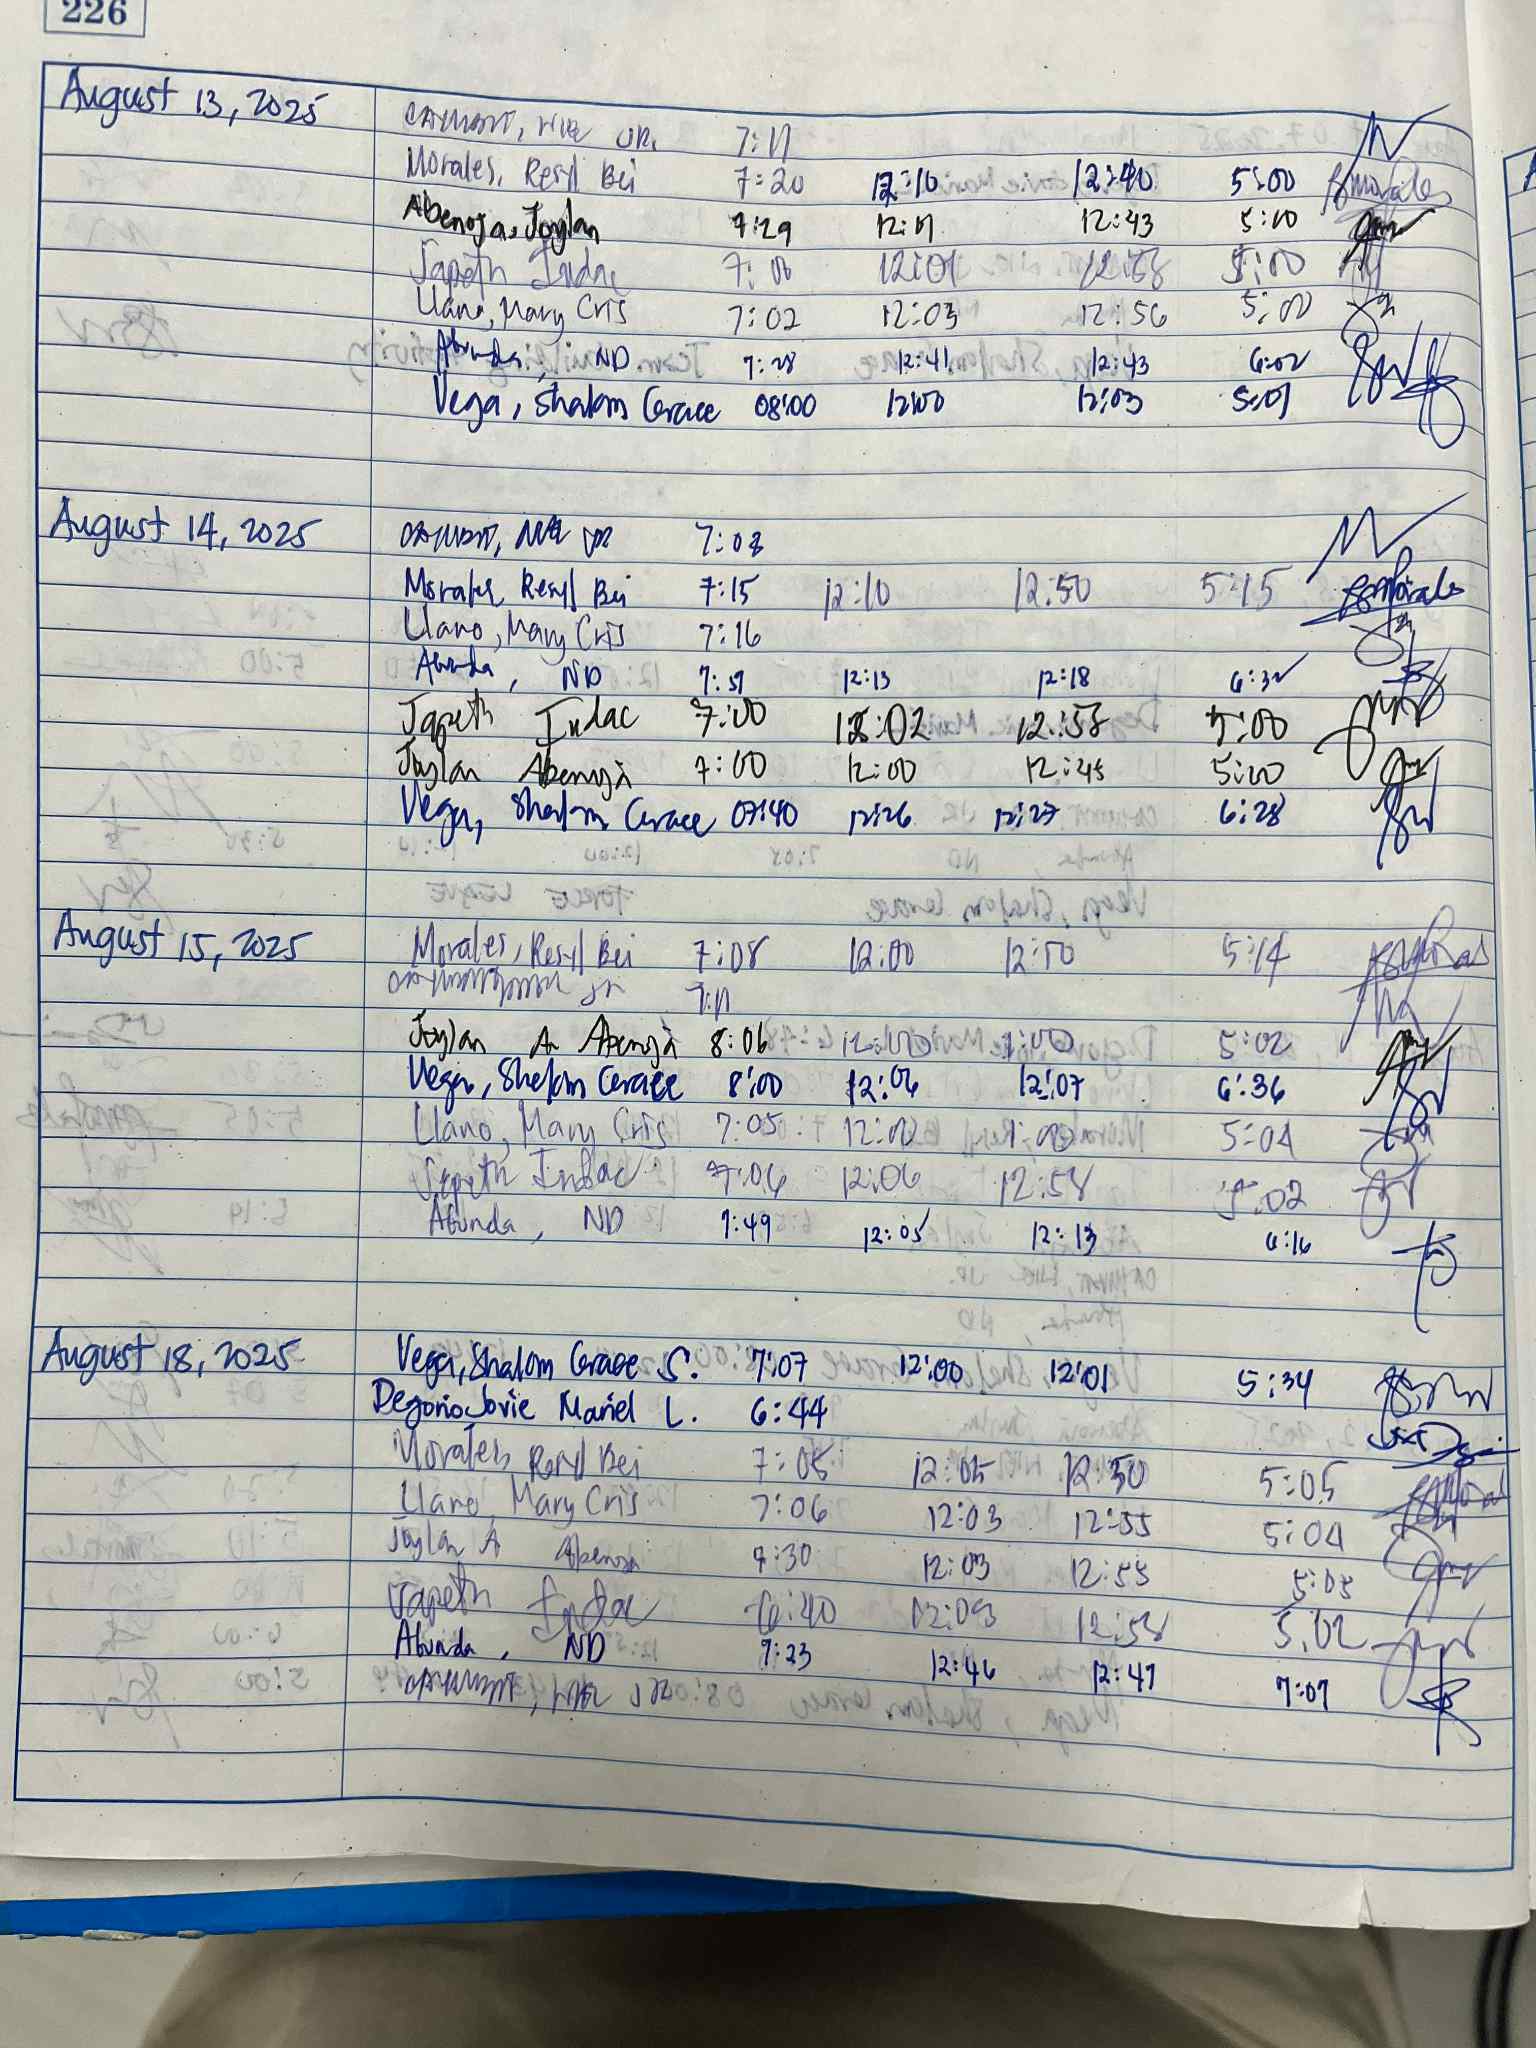 226
August 13, 2025
JR. 7:17
Morales, Resyl Bei 7:20 12:10 12:40 5:00
Abenoja, Joylan 7:29 12:01 12:43 5:00
Japeth Indac 7:00 12:01 12:58 5:00
Llano, Mary Cris 7:02 12:03 12:56 5:00
Abunda, ND 7:28 12:41 12:43 6:02
Vega, Shalom Grace 08:00 12:00 12:03 5:01
August 14, 2025
7:08
Morales, Resyl Bei 7:15 12:10 12:50 5:15
Llano, Mary Cris 7:16
Abunda, ND 7:51 12:13 12:18 6:32
Japeth Indac 7:00 12:02 12:58 5:00
Joylan Abenoja 7:00 12:00 12:45 5:00
Vega, Shalom Grace 07:40 12:26 12:27 6:28
August 15, 2025
Morales, Resyl Bei 7:08 12:00 12:50 5:14
Jr 7:11
Joylan A. Abenoja 8:06 12:00 1:00 5:02
Vega, Shalom Grace 8:00 12:06 12:07 6:36
Llano, Mary Cris 7:05 12:00 1:00 5:04
Japeth Indac 7:06 12:06 12:58 5:02
Abunda, ND 7:49 12:05 12:13 6:16
August 18, 2025
Vega, Shalom Grace S. 7:07 12:00 12:01 5:34
Degorio Jovie Mariel L. 6:44
Morales Resyl Bei 7:05 12:05 12:50 5:05
Llano, Mary Cris 7:06 12:03 12:55 5:04
Joylan A Abenoja 7:30 12:03 12:55 5:05
Japeth Indac 6:40 12:03 12:58 5:02
Abunda, ND 7:23 12:46 12:47 7:07